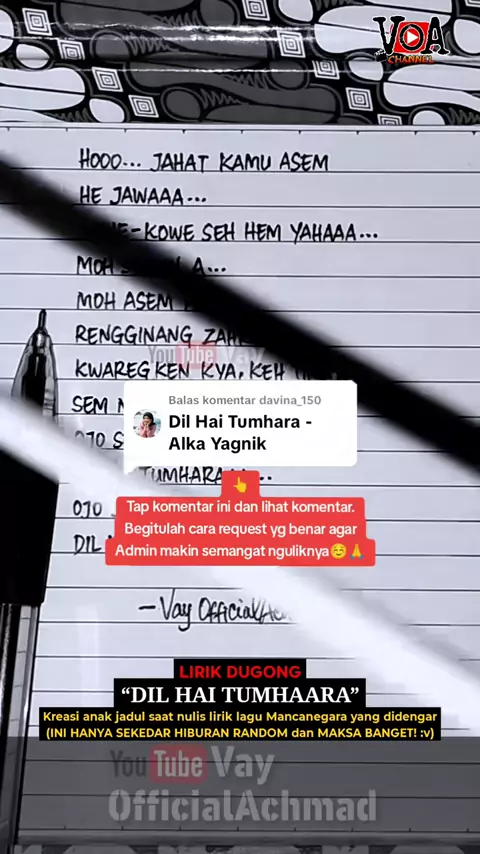 VOA
CHANNEL
HOOO... JAHAT KAMU ASEM
HE JAWAAA...
-KOWE SEH HEM YAHAAA...
MOH A...
MOH ASEM
RENGGINANG
KWAREG KEN KYA, KEH
SEM
OJO
TUMHARA
OJO
DIL
YouTube Vay
Balas komentar davina_150
Dil Hai Tumhara -
Alka Yagnik
👆
Tap komentar ini dan lihat komentar.
Begitulah cara request yg benar agar
Admin makin semangat nguliknya☺️🙏
-Vay Official
LIRIK DUGONG
“DIL HAI TUMHAARA”
Kreasi anak jadul saat nulis lirik lagu Mancanegara yang didengar
(INI HANYA SEKEDAR HIBURAN RANDOM dan MAKSA BANGET! :v)
YouTube Vay
OfficialAchmad